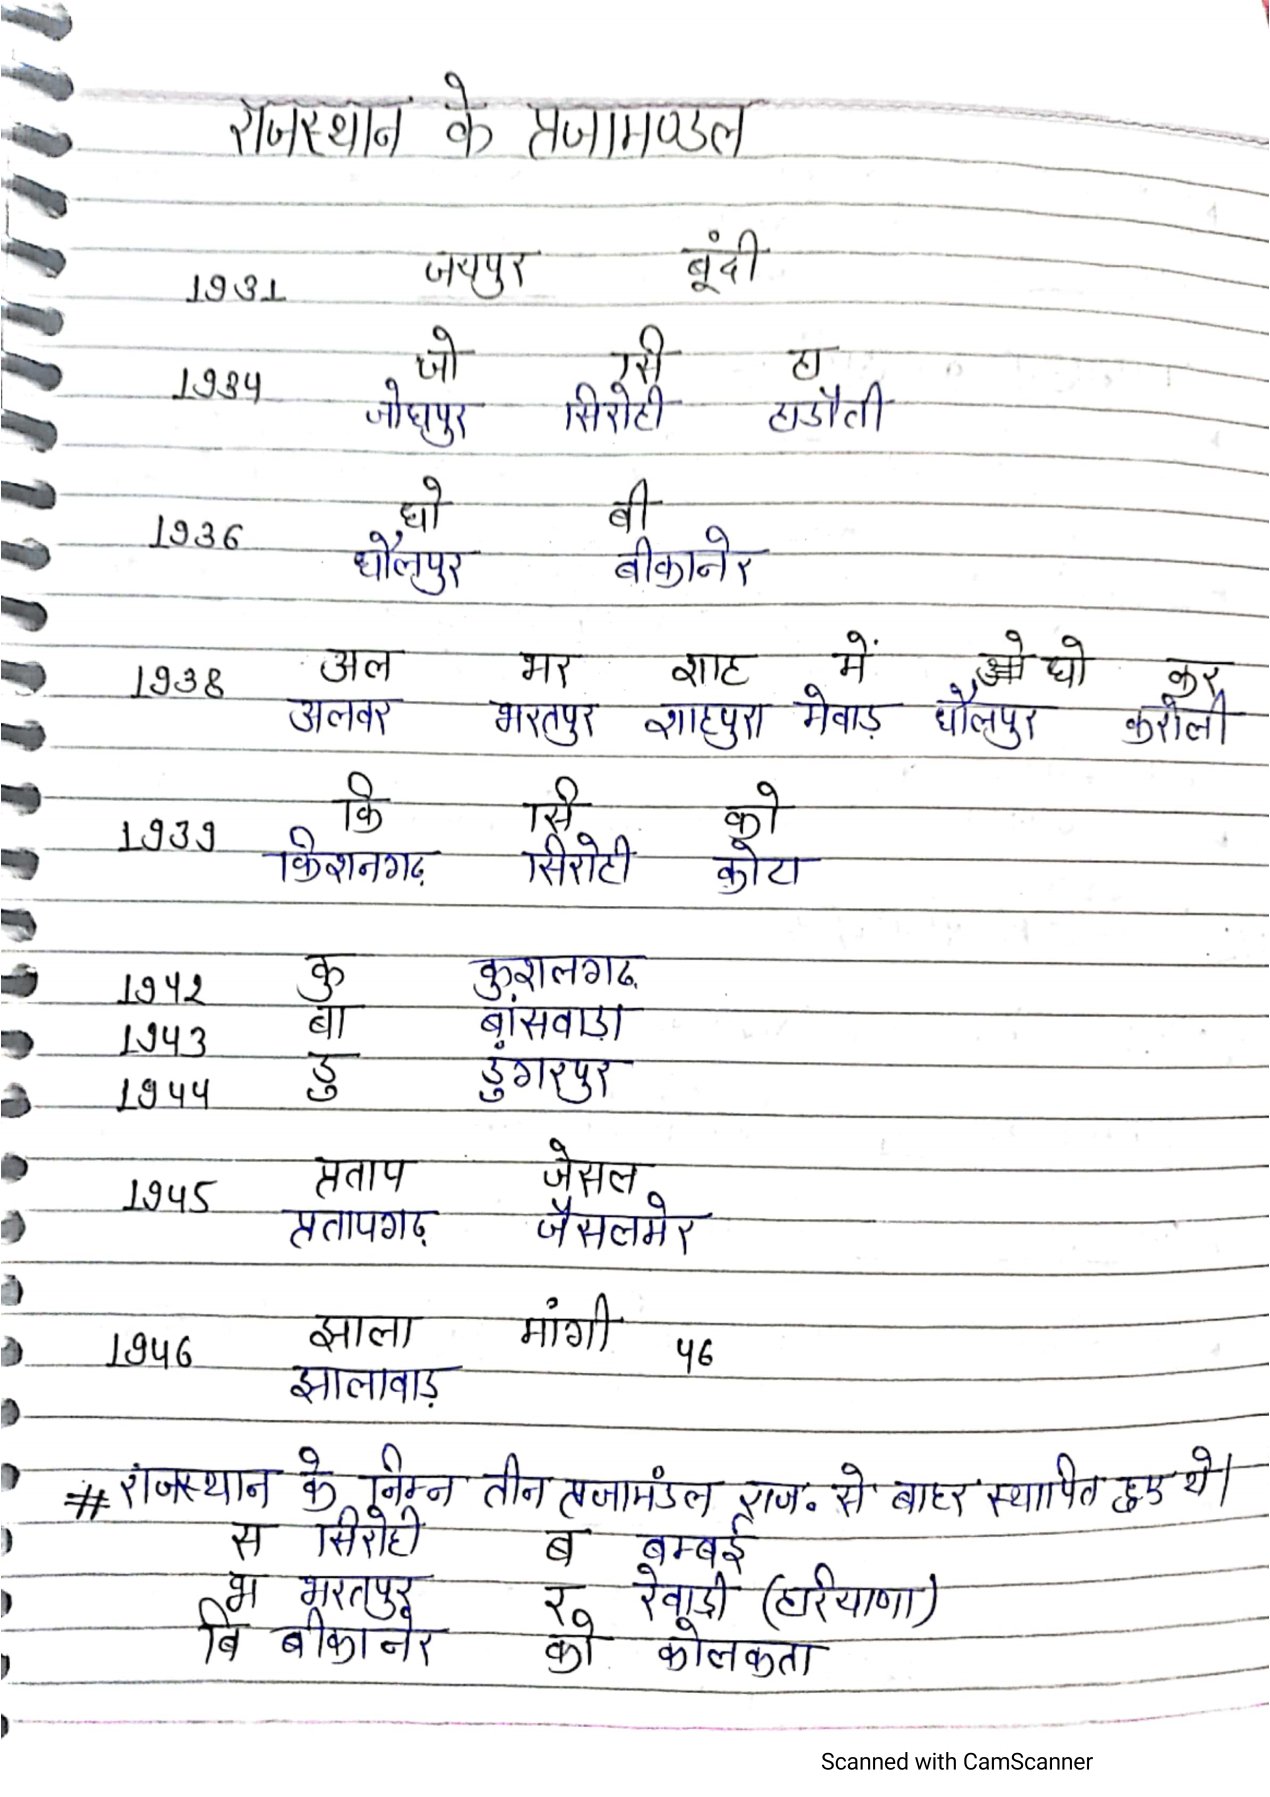 राजस्थान के प्रजामण्डल
1931 जयपुर बूंदी
1934 जो सि हा
जोधपुर सिरोही हाडौती
1936 धो बी
धौलपुर बीकानेर
1938 अल भर शाह में धो कर
अलवर भरतपुर शाहपुरा मेवाड़ धौलपुर करौली
1939 कि सि को
किशनगढ़ सिरोही कोटा
1942 कु कुशलगढ़
1943 बा बांसवाड़ा
1944 डु डुंगरपुर
1945 प्रताप जेसल
प्रतापगढ़ जैसलमेर
1946 झाला मांगी 46
झालावाड़
# राजस्थान के निम्न तीन प्रजामंडल राज. से बाहर स्थापित हुए थे।
स सिरोही ब बम्बई
भ भरतपुर र रेवाड़ी (हरियाणा)
बि बीकानेर को कोलकता
Scanned with CamScanner